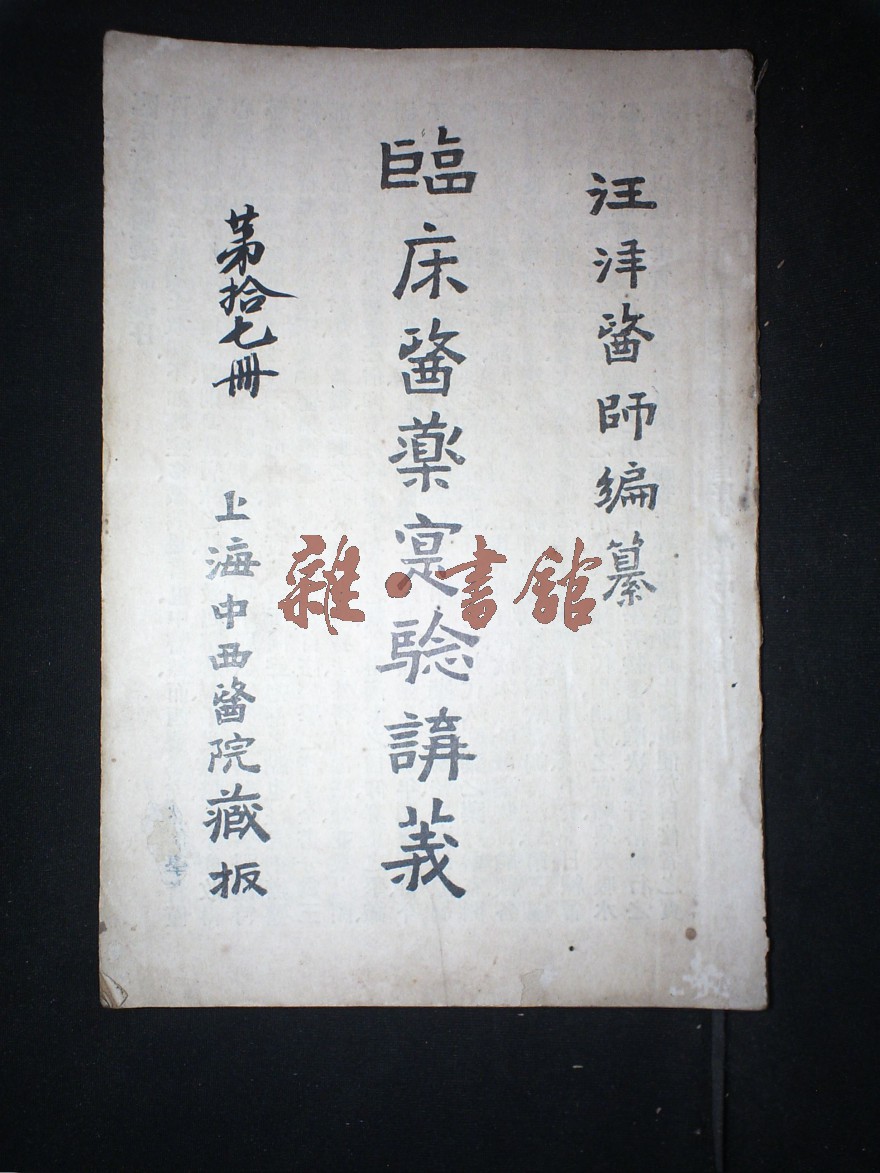 汪洋醫師編纂
臨床醫藥寔驗講義
第拾七冊
上海中西醫院藏板
雜·書館